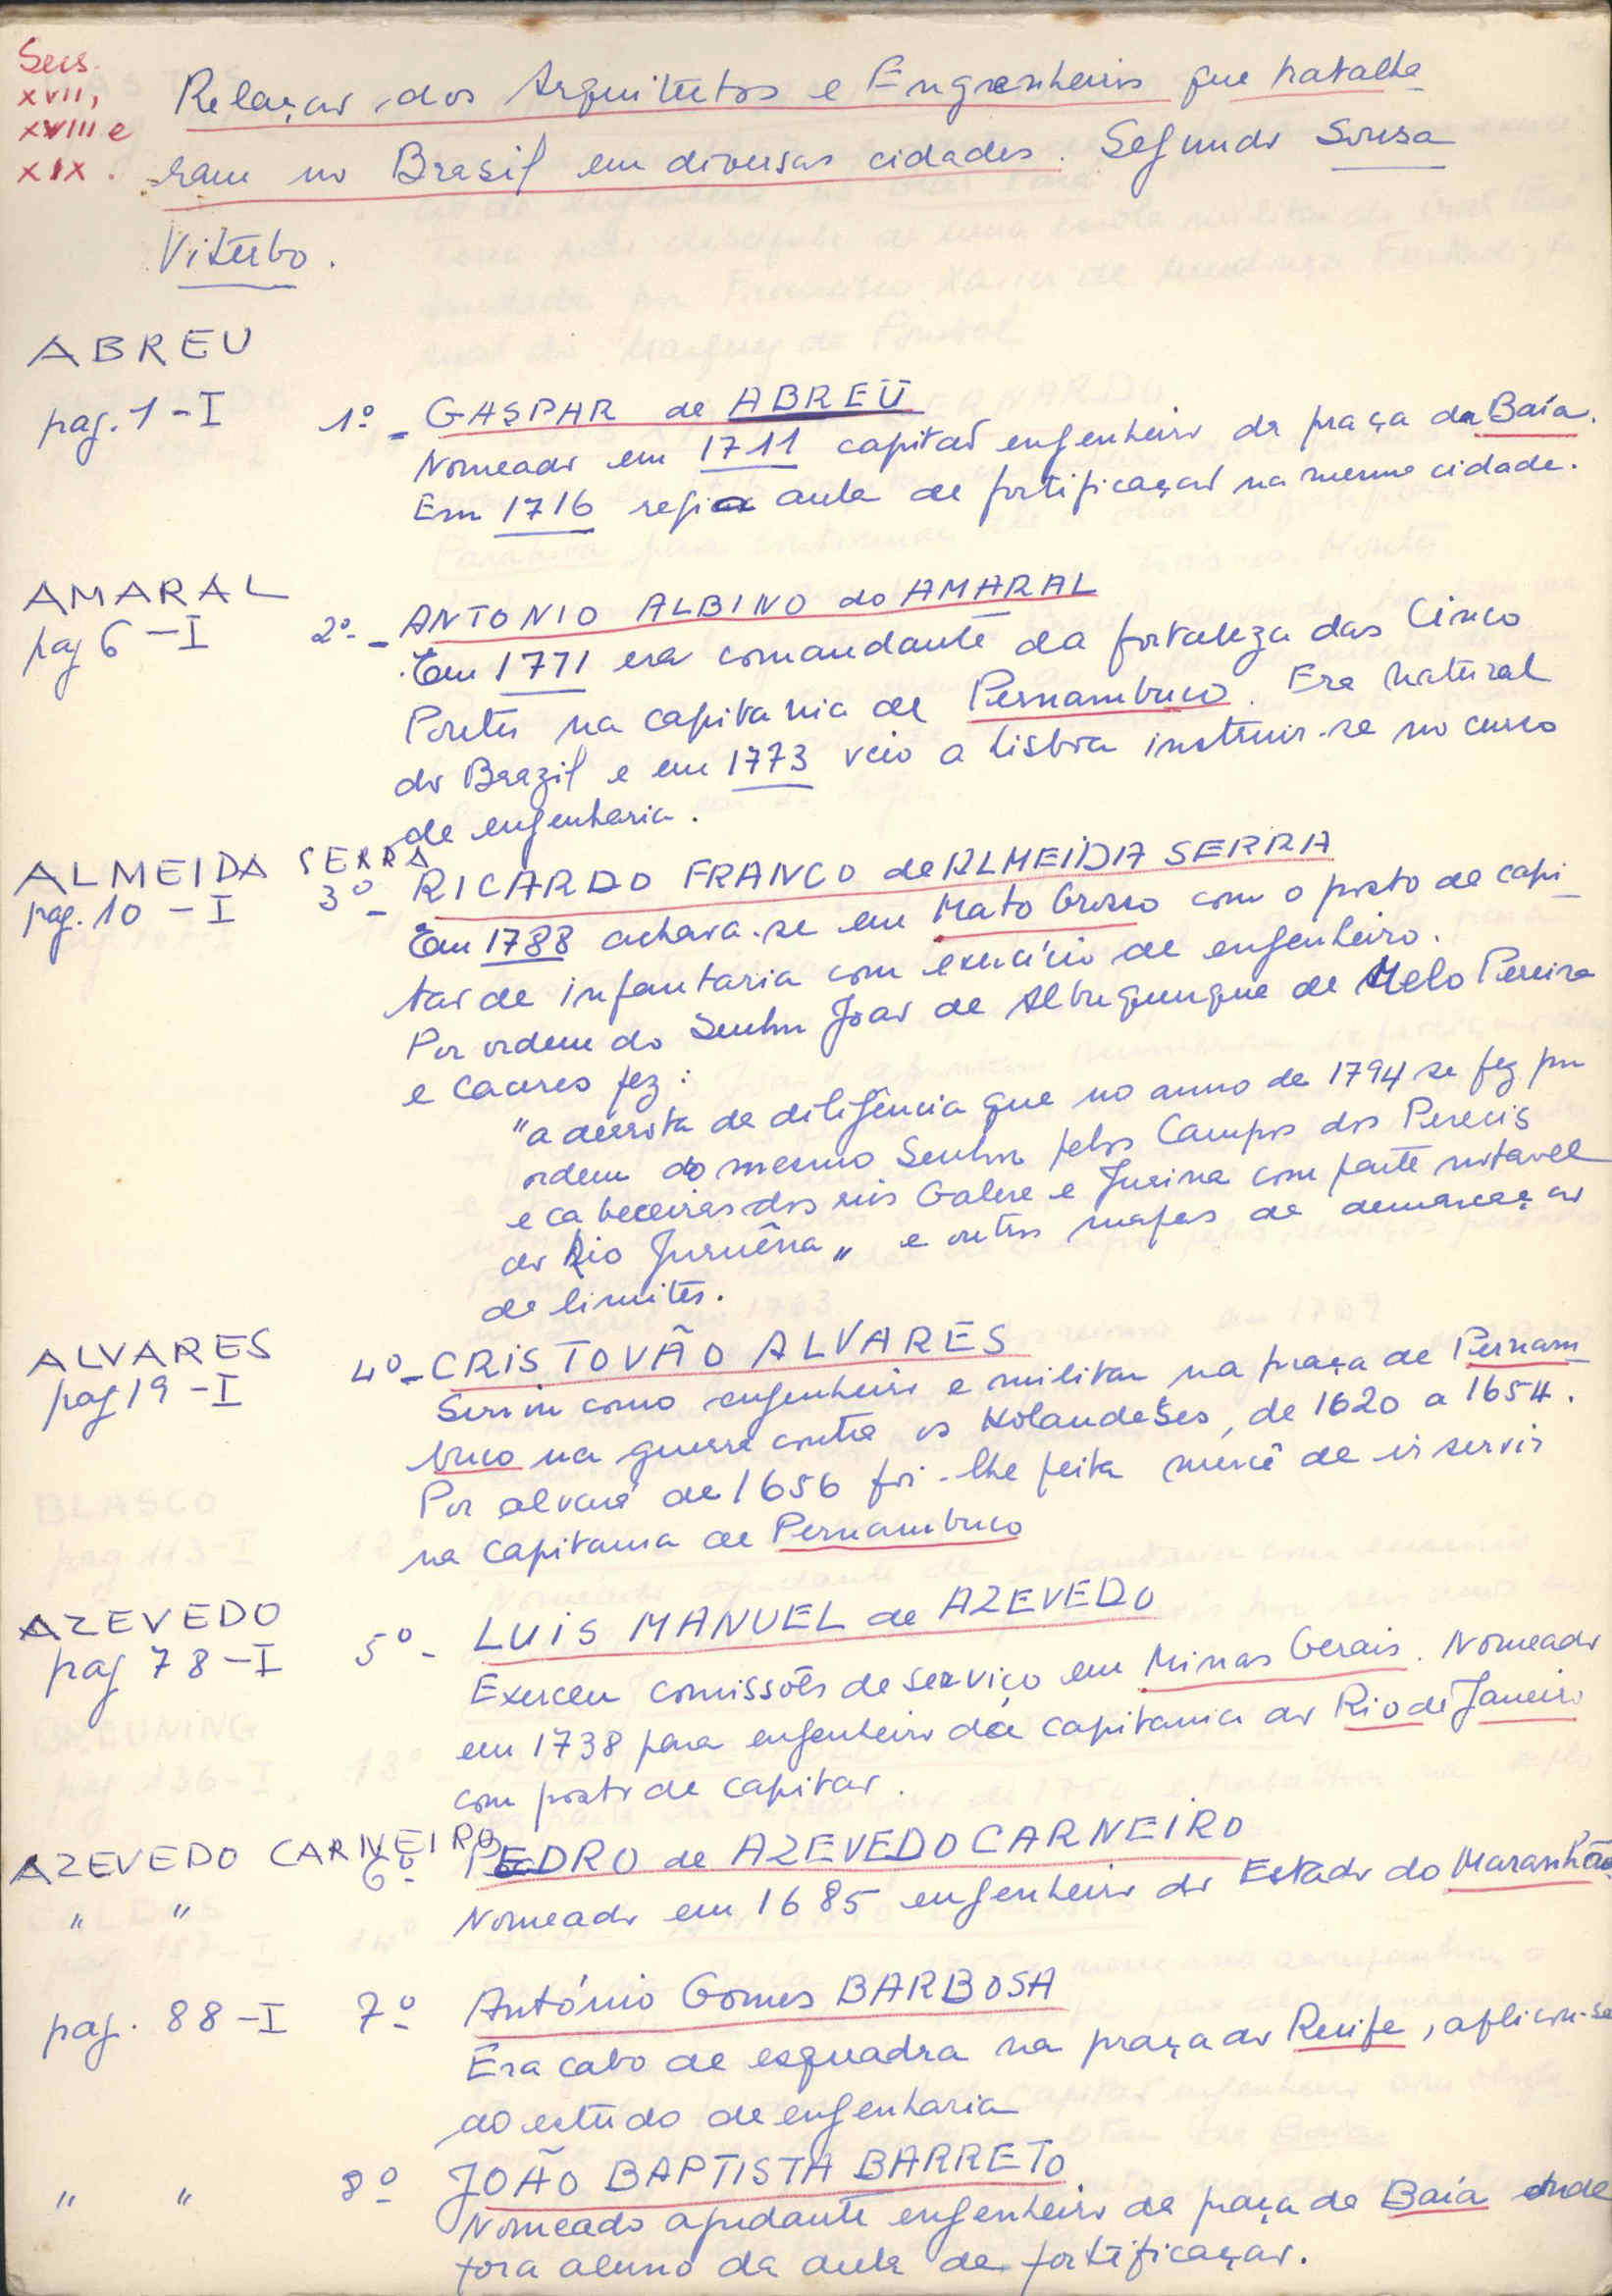 Secs.
XVII,
XVIII e
XIX.
Relação dos Arquitetos e Engenheiros que trabalha
ram no Brasil em diversas cidades. Segundo Sousa
Viterbo.
ABREU
pag. 1 - I
1º - GASPAR de ABREU
Nomeado em 1711 capitão engenheiro da praça da Baía.
Em 1716 regia aula de fortificação na mesma cidade.
AMARAL
pag 6 - I
2º - ANTONIO ALBINO do AMARAL
Em 1771 era comandante da fortaleza das Cinco
Pontes na capitania de Pernambuco. Era natural
do Brazil e em 1773 veio a Lisboa instruir-se no curso
de engenharia.
ALMEIDA SERRA
pag. 10 - I
3º - RICARDO FRANCO de ALMEIDA SERRA
Em 1788 achava-se em Mato Grosso com o posto de capi
tão de infantaria com exercício de engenheiro.
Por ordem do Senhor João de Albuquerque de Melo Pereira
e Caceres fez:
"a derrota da diligência que no anno de 1794 se fez por
ordem do mesmo Senhor pelos Campos dos Perecis
e cabeceiras dos rios Galere e Jurina com parte notavel
do Rio Juruêna" e outros mapas de demarcação
de limites.
ALVARES
pag 19 - I
4º - CRISTOVÃO ALVARES
Serviu como engenheiro e militar na praça de Pernam
buco na guerra contra os Holandeses, de 1620 a 1654.
Por alvará de 1656 foi-lhe feita mercê de ir servir
na capitania de Pernambuco
AZEVEDO
pag 78 - I
5º - LUIS MANUEL de AZEVEDO
Exerceu comissões de serviço em Minas Gerais. Nomeado
em 1738 para engenheiro da capitania do Rio de Janeiro
com posto de capitão.
AZEVEDO CARNEIRO
" "
6º PEDRO de AZEVEDO CARNEIRO
Nomeado em 1685 engenheiro do Estado do Maranhão
pag. 88 - I
7º António Gomes BARBOSA
Era cabo de esquadra na praça do Recife, aplicou-se
ao estudo de engenharia
" "
8º JOÃO BAPTISTA BARRETO
Nomeado ajudante engenheiro da praça da Baía onde
fora aluno da aula de fortificação.